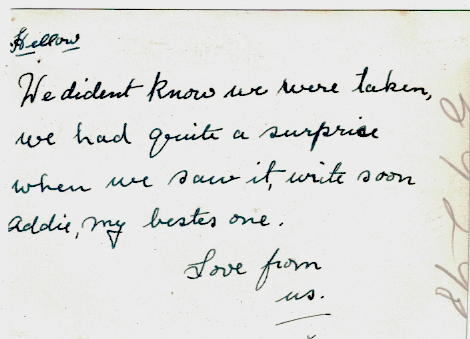 Hellow
We dident know we were taken,
we had quite a surprise
when we saw it, write soon
addie, my bestes one.
Love from
us.